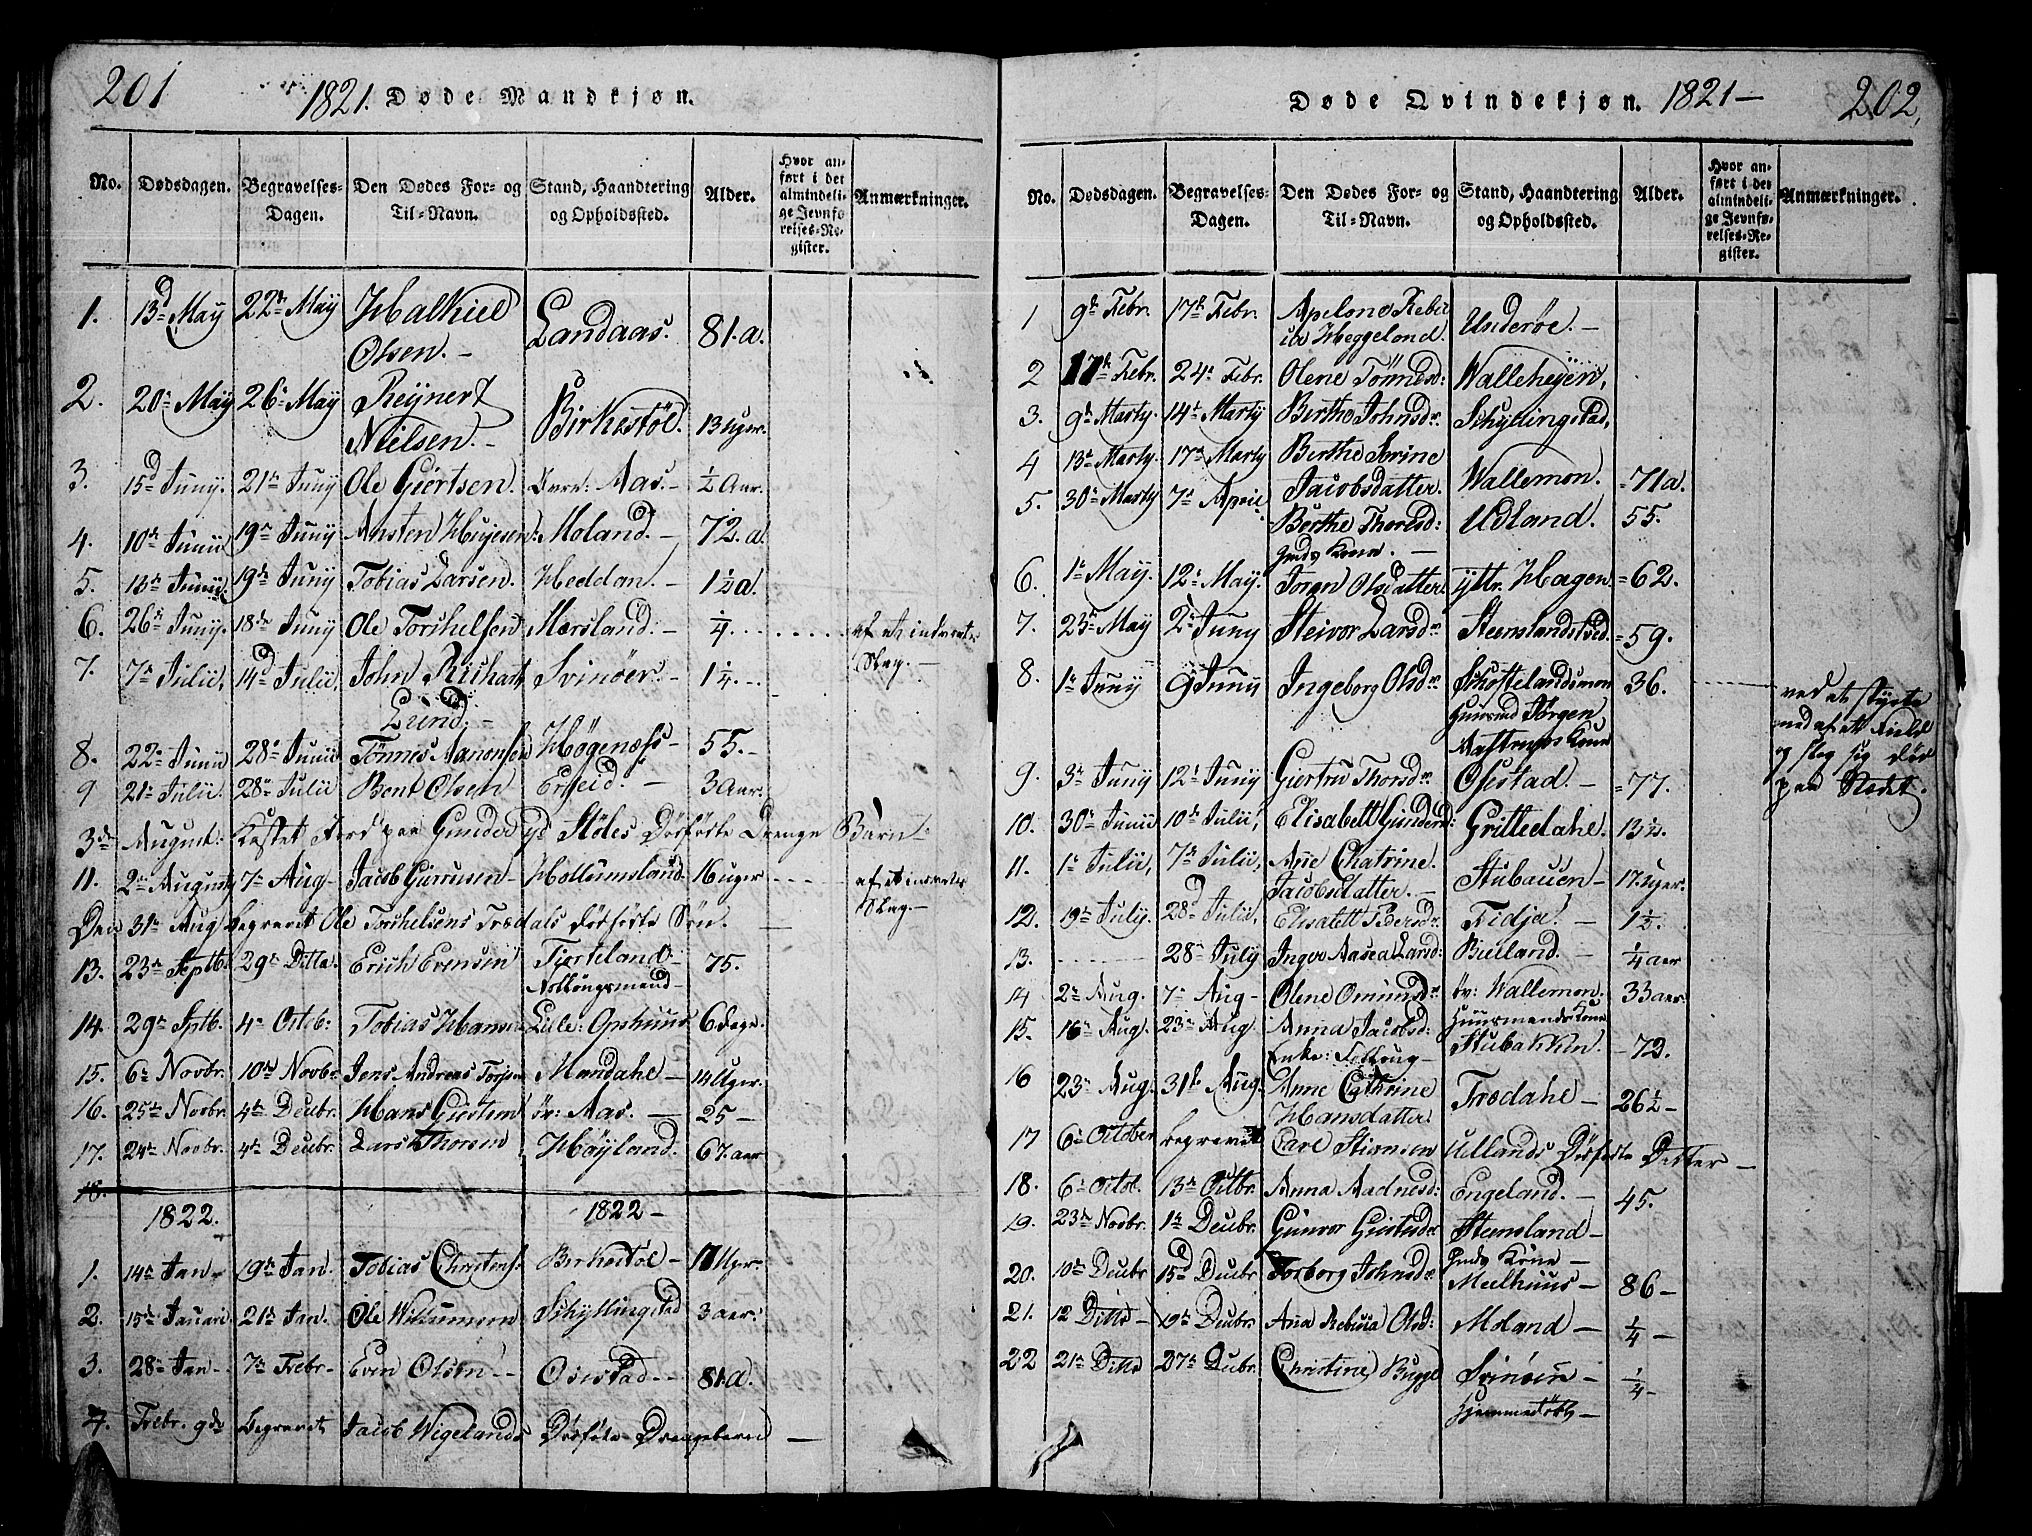 201
1821. Døde Mandkjøn.
No. Dødsdagen. Begravelses-Dagen. Den Dødes For- og Til-Navn. Stand, Haandtering og Opholdssted. Alder. Hvor anført i det almindelige Jevnførelses-Register. Anmærkninger.
1. 13d May 22de May Halkiel Olsen. Landaas. 81.a.
2. 20de May 26de May Reynert Nielsen. Birkestöl. 13 uger.
3. 15d Juny. 21de Juny Ole Giertsen. Aas. ½ Aar.
4. 10de Junii 19de Juny Ansten Moland. 72.a
5. 13de Junii 19de Juny Tobias Larsen. Heddan. 1½a.
6. 26de Juny. 18de Juny Ole Torkelsen Mersland. ¼
Slag.
7. 7de Julii, 14d Julii, John Richart Lund. Svinöer. 1¼
8. 22de Junii 28de Junii Tönnes Aanonsen Högenæss 55.
9 21de Julii. 28de Julii Bent Olsen Erseid. 3 Aar.
3de August. Kastet Jord paa Gunder Stöles Dödfödte Drenge Barn.
11. 2de Augusty 7de Aug Jacob Hollumsland 16 uger
Slag.
Den 31te Aug begravet Ole Torkelsens Trædals dödfödte Sön.
13. 23de Septb. 29de Ditto. Erich Evensen 75.
14. 29de Sptb. 4de Octob: Tobias Hansen Lille: Opshuus 6 dage.
15. 6te Novbr. 10de Novbr Jens Andreas Mandahl 14 Uger.
16. 25de Novbr. 4de Decbr. Hans Giertsen öv: Aas. 25
17. 24de Novbr. 4de Decbr. Lars Thorsen Höyland. 67. aar
18.
1822. 1822
1. 14de Jan 19de Jan. Tobias Christens. Birkestöl 17 Uger.
2. 15de Januari 21de Jan. Ole Schyllingstad 3 aar.
3. 28de Jan 7de Febr. Even Olsen Osestad 81.a.
4. Febr. 9de Begravet Jacob Wigelands Dödfödte Drengebarn
202
Døde Qvindekjøn. 1821
No. Dødsdagen. Begravelses-Dagen. Den Dødes For- og Til-Navn. Stand, Haandtering og Opholdssted. Alder. Hvor anført i det almindelige Jevnførelses-Register. Anmærkninger.
1 9de Febr. 17de Febr. Apelone Heggeland. Underöe.
2 17de Febr. 24de Febr. Olene Tönnesd: Walleheyen,
3. 9de Marty. 14de Marty Berthe Johnsdr. Schyllingstad,
4 13de Marty. 17de Marty Berthe Serine Jacobsdatter. Wallemon. 71a.
5. 30de Marty 7de April Berthe Thorsd: Udland. 55.
6. 1de May. 12de May. Joran Olsdatter yttr. Hagen 62.
7. 23de May 2de Juny Steivor Larsdr Steenslands 59.
8. 1de Juny 9d Juny Ingeborg Olsdr. Skottelandsmoen Huusmd Jörgen Aastrups Kone 36.
ved at styrte ned af et Field og slog sig död paa Stedet.
9. 3de Juny 12de Juny Giertru Thorsdr. Osestad. 77.
10. 30de Junii 10de Julii, Elisabett Gunders: Gritteedahl. 13½.
11. 1de Julii, 7de Julii, Ane Chatrine. Jacobsdatter. Stubauen 17. Uger.
12. 19de July. 28d Julii, Elisabett Pedersdr. Fidja. 1½.
13. 28de July Inger Aasea Larsd: Builand. ¼ aar
14 2de Aug. 7de Aug Olene Omundsdr. öv: Wallemon. Huusmands Kone 33 aar.
15. 16de Aug 23de Aug. Anna Jacobsd: Enke: Stubakken. 73.
16 23de Aug. 31te Aug. Anne Cathrine Hansdatter Trædahl 26½
17 6te October begravet Carl Stiansen Uellands Dödfödte Datter
18. 6te Octob. 13de Octbr. Anna Aadnesd: Engeland. 45.
19. 23de Novbr. 1de Decbr. Gunvor Giertsdr Steensland
20. 10de Decbr 15d Decbr Torborg Johnsdr Meelhuus 86
21. 12 Ditto 19de Decbr. Ana Rebecca Olsd: Moland ¼
22 21de Ditto 27de Decbr. Christine Bugge Svinöen Hjemmedöbt ¼